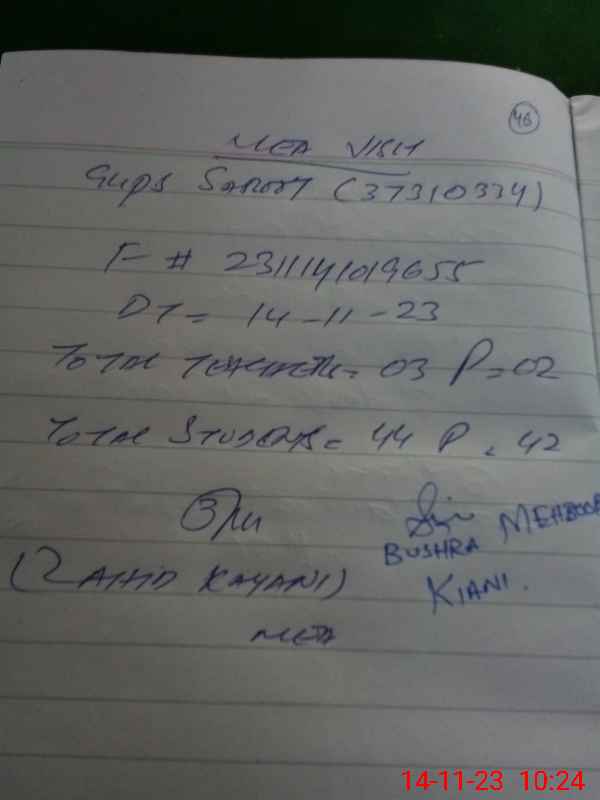 46
MEA VISIT
GGPS SAROOT (37310334)
F # 2311141019655
DT = 14-11-23
TOTAL TEACHERS = 03 P = 02
TOTAL STUDENTS = 44 P = 42
(ZAHID KAYANI)
MEA
BUSHRA MEHBOOB
KIANI.
14-11-23 10:24